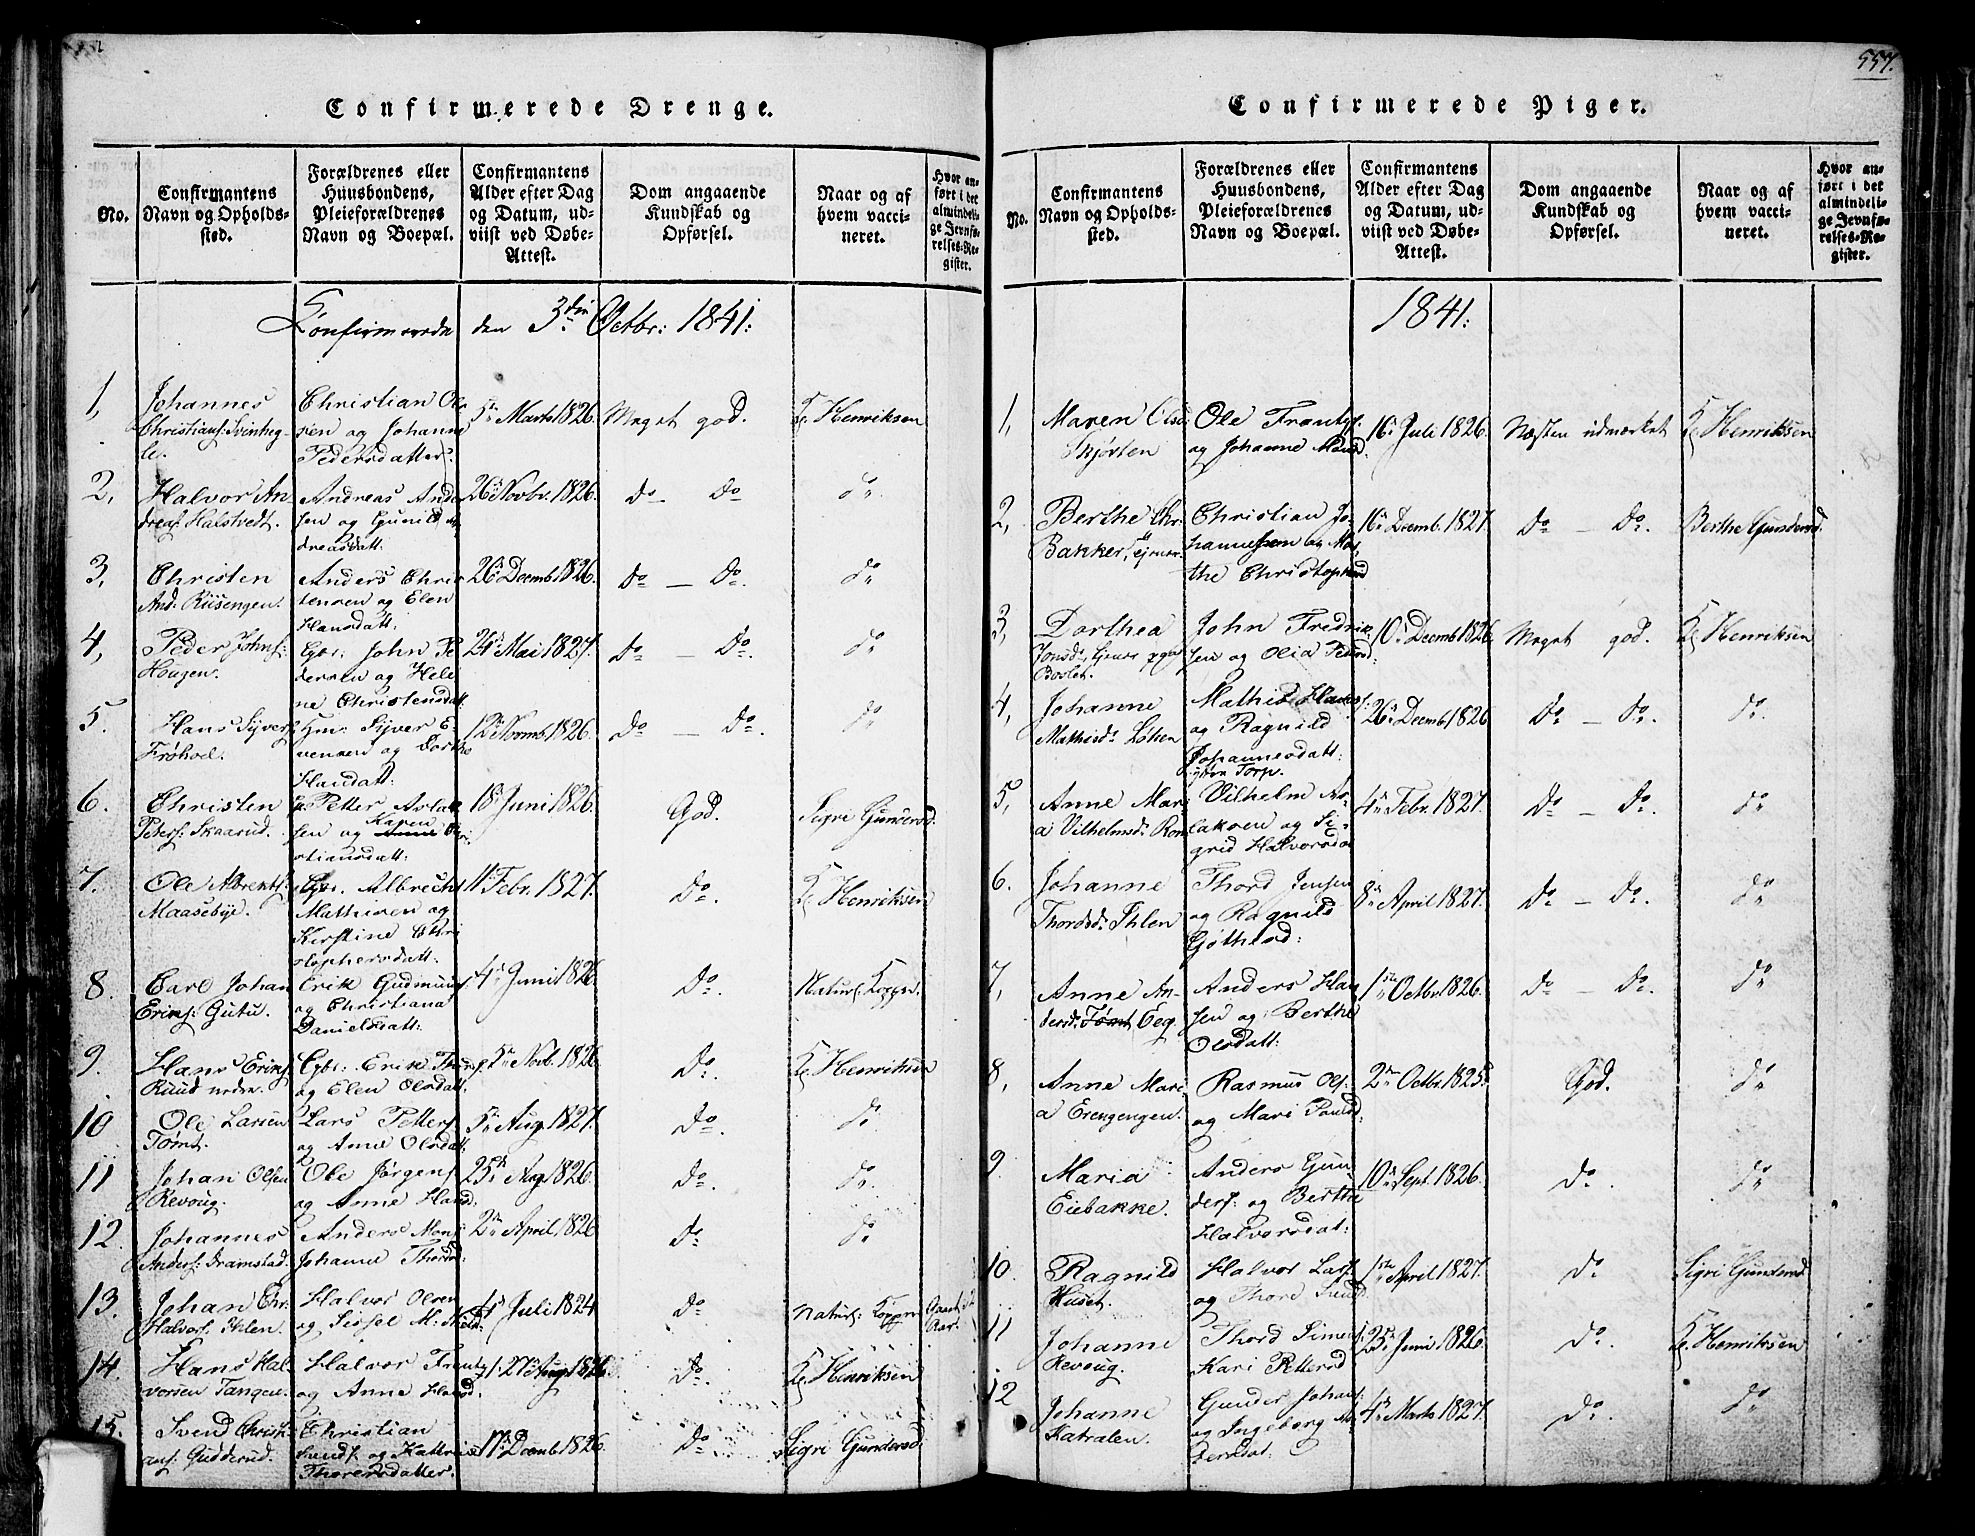 557.
Confirmerede Drenge.
No.
Confirmantens
Navn og Opholds-
sted.
Forældrenes eller
Huusbondens,
Pleieforældrenes
Navn og Boepæl.
Confirmantens
Alder efter Dag
og Datum, ud-
viist ved Døbe-
Attest.
Dom angaaende
Kundskab og
Opførsel.
Naar og af
hvem vacci-
neret.
Hvor an-
ført i det
almindeli-
ge Jevnfø-
relses-Re-
gister.
Confirmerede den 3die Octbr: 1841:
1,
Johannes
Christians: Svinheg-
le.
Christian Ol-
sen og Johanne
Pedersdatter.
5te Marts 1826.
Meget god.
Kl. Henriksen
2,
Halvor An
dreas: Halstvedt.
Andreas And
sen og Gunild An
dreasdatt:
26de Novbr. 1826.
do — do
do.
3,
Christen
And: Riisengen.
Anders Chris
tensen og Elen
Hansdatt:
26 Decmb 1826.
do — do.
do
4,
Peder Johns:
Hougen.
Gbr: John Pe
dersen og Hele
ne Christensdatt
24de Mai 1827.
do — do.
do
5.
Hans Syvers:
Frøhoel.
Hm: Syver E-
vensen og Dorthe
Hansdatt:
12 Novmb 1826.
do — do.
do
6.
Christen
Peters: Skaarud.
Petter Aslak
sen og Karen Chri
stiansdatt:
18 Juni 1826.
God.
Sigri Gundersd.
7.
Ole Albrekts:
Maasebye.
Gbr. Albrecht
Mathisen og
Kirstine Chri
stophersdatt:
11 Febr. 1827.
do.
Kl Henriksen
8.
Carl Johan
Eriks: Gutu.
Erik Gudmunds
og Christiana
Danielsdatt:
4de Juni 1826
do.
Naturl. Kopper.
9.
Hans Eriks:
Ruud nedre.
Gbr: Erik Thors
og Elen Olsdatt:
5te Novb. 1826
do.
Kl. Henriksen
10
Ole Larsen
Tømt.
Lars Petters
og Anne Olsdatt:
5te Aug 1827.
do.
do.
11
Johan Olsen
Revoug.
Ole Jørgens
og Anne Hansd
25de Aug 1826.
do.
do.
12.
Johannes
Anders: Dramstad.
Anders Mons
Johanne Thorsd:
2den April 1826
do
do
13.
Johan Chr.
Halvors: Ihlen.
Halvor Olsen
og Sissel M:
4de Juli 1824
do
Naturl: Kopper
Aar.
14.
Hans Hal
vorsen Tangen.
Halvor Frants
og Anne Hansd.
27de Aug 1826
do.
Kl. Henriksen
15.
Svend Christi
ans: Gudderud.
Christian
Svends. og Kathrine
Thorersdatter.
17 Decmb 1826
do
Sigri Gundersd
Confirmerede Piger.
No.
Confirmantens
Navn og Opholds-
sted.
Forældrenes eller
Huusbondens,
Pleieforældrenes
Navn og Boepæl.
Confirmantens
Alder efter Dag
og Datum, ud-
viist ved Døbe-
Attest.
Dom angaaende
Kundskab og
Opførsel.
Naar og af
hvem vacci-
neret.
Hvor an-
ført i det
almindeli-
ge Jevnfø-
relses-Re-
gister.
1841:
1,
Maren Olsd
Skjørten
Ole Frants:
og Johanne
16de Juli 1826.
Næsten udmerket
Kl Henriksen
2,
Berthe Chr:
Bakker,
Christian Jo-
hannessen og Mar
the Christophersd
16 Decmb. 1827.
do — do.
Berthe Gundersd.
3,
Dorthea
Jonsd:
John Fredrik
sen og Olia Pedersd:
10 Decmb 1826
Meget god.
Kl Henriksen
4,
Johanne
Mathisd: Løken
Mathis Hans
og Ragnild
Johannesdatt:
Torp.
26 Decmb 1826
do — do.
do.
5,
Anne Mari
a Vilhelmsd:
Vilhelm As-
laksen og Si-
grid Halvorsda
4de Febr. 1827.
do — do.
do
6.
Johanne
Thordsd: Ihlen
Thord Jensen
og Ragnild
Gøthesd:
8de April 1827.
do — do.
do
7,
Anne An-
dersd: Tømt Eeg.
Anders Han
sen og Berthe
Olsdatt:
1ste Octbr 1826.
do — do.
do
8,
Anne Mari
a Erengengen.
Rasmus Ols:
og Mari Poulsd:
2den Octbr. 1825
God.
do
9
Maria
Eiebakke.
Anders Gun-
ders: og Berthe
Halvorsdat:
10 Sept. 1826.
do.
do
10.
Ragnild
Huset.
Halvor Lars
og Thore
1ste April 1827.
do.
Sigri Gundersd
11
Johanne
Revoug.
Thord Simens
Kari Pettersd
25 Juni 1826
do.
Kl. Henriksen
12
Johanne
Katralen.
Gunder Johan:
og Ingeborg An
dersdat:
4de Marts 1827.
do.
do